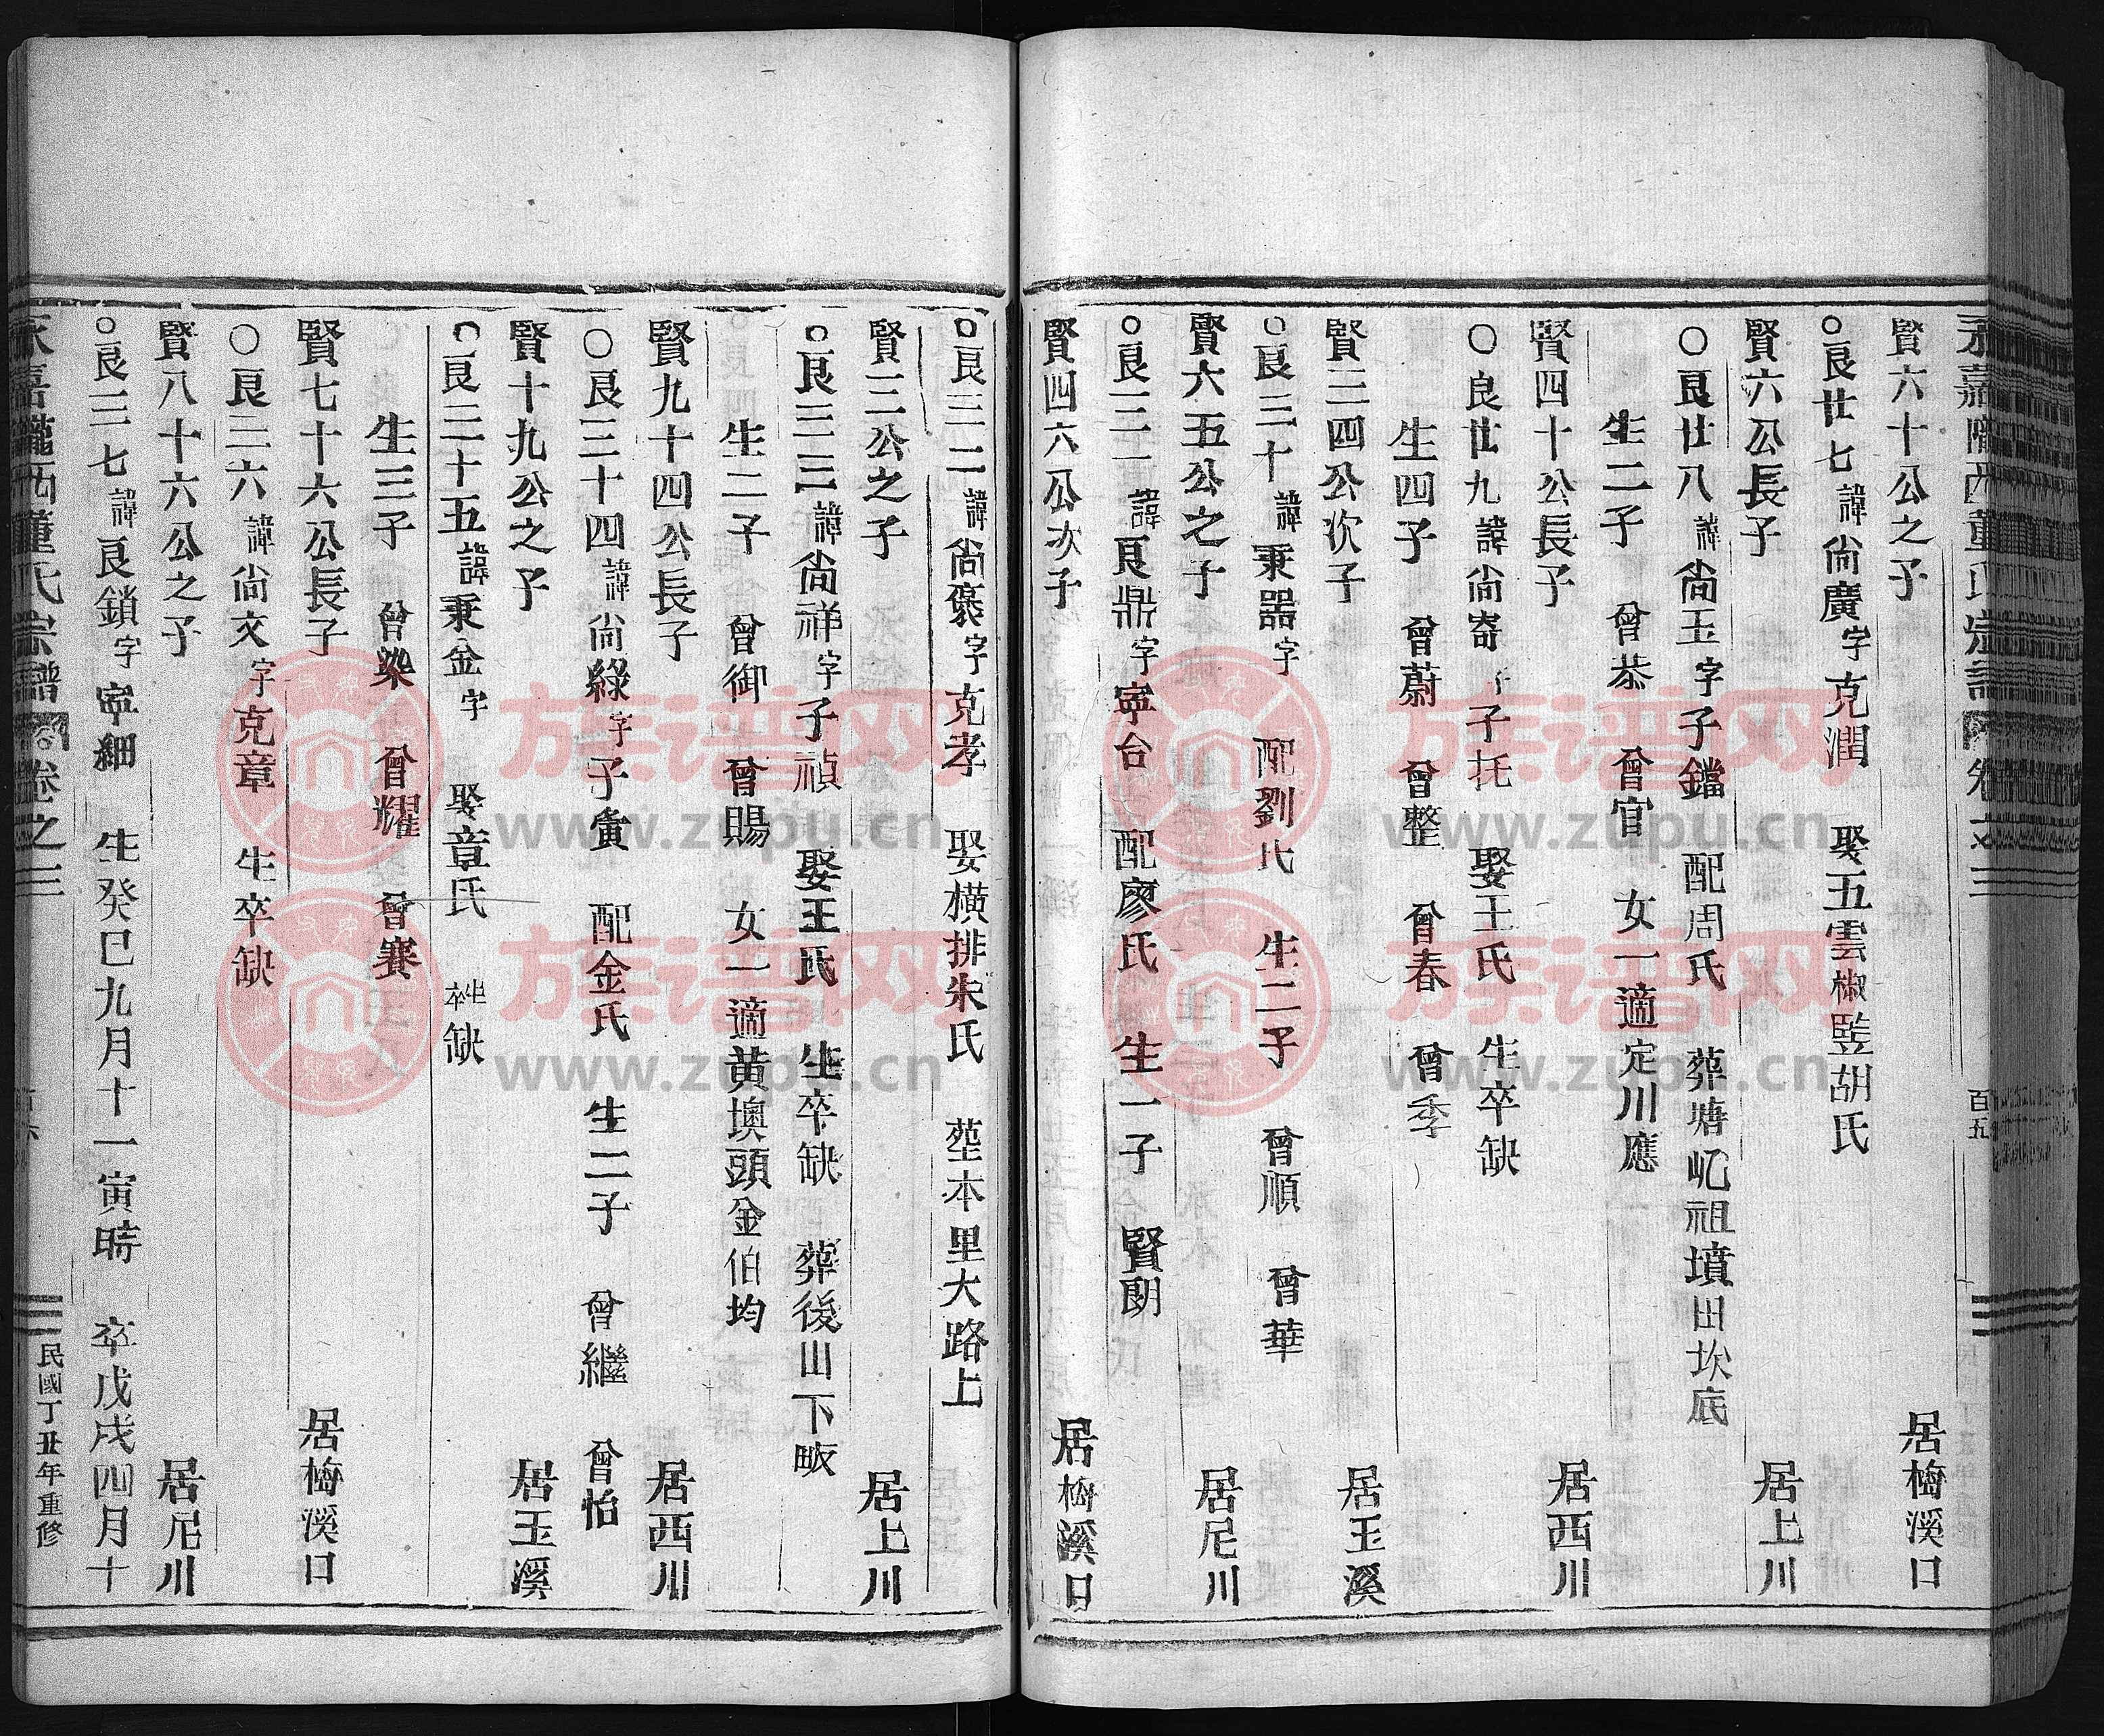 永嘉隴西董氏宗譜 卷之三 百五
賢六十公之子 居梅溪口
○良廿七諱尚廣字克潤 娶五雲椒監胡氏
賢六公長子 居上川
○良廿八諱尚玉字子鐺 配周氏 葬塘屺祖墳田坎底
生二子 曾恭 曾官 女一適定川應
賢四十公長子 居西川
○良廿九諱尚嵜 子托 娶王氏 生卒缺
生四子 曾蔚 曾整 曾春 曾季
賢三四公次子 居玉溪
○良三十諱秉器字 配劉氏 生二子 曾順 曾華
賢六五公之子 居尼川
○良三一諱良鼎字寧台 配廖氏 生一子 賢朗
賢四六公次子 居梅溪口
○良三二諱尚褒字克孝 娶橫排朱氏 塟本里大路上
賢三公之子 居上川
○良三三諱尚祥字子禎 娶王氏 生卒缺 葬後山下畈
生二子 曾御 曾賜 女一適黄墺頭金伯均
賢九十四公長子 居西川
○良三十四諱尚綠字子黃 配金氏 生二子 曾繼 曾怡
賢十九公之子 居玉溪
○良三十五諱秉金字 娶章氏 生卒缺
生三子 曾染 曾耀 曾賽
賢七十六公長子 居梅溪口
○良三六諱尚文字克章 生卒缺
賢八十六公之子 居尼川
○良三七諱良鎖字寧細 生癸巳九月十一寅時 卒戊戌四月十
永嘉隴西董氏宗譜 卷之三 民國丁丑年重修
族谱网
www.zupu.cn
族谱网
www.zupu.cn
族谱网
www.zupu.cn
族谱网
www.zupu.cn